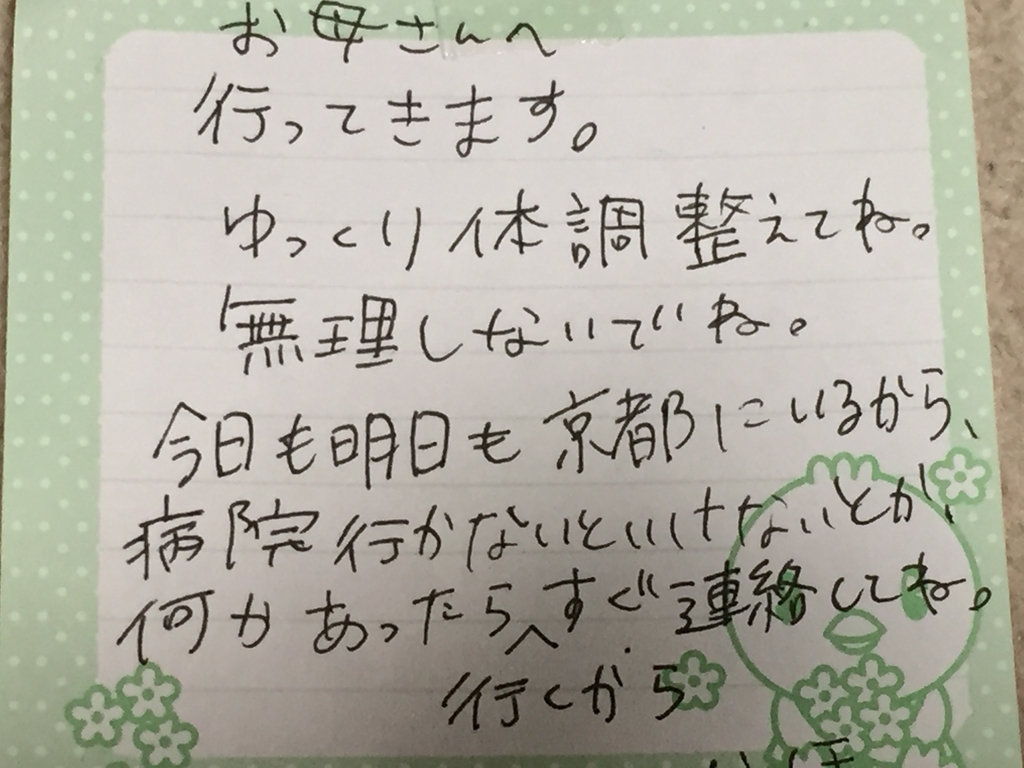 お母さんへ
行ってきます。
ゆっくり体調整えてね。
無理しないでね。
今日も明日も京都にいるから、
病院行かないといけないとか、
何かあったらすぐ連絡してね。
行くから